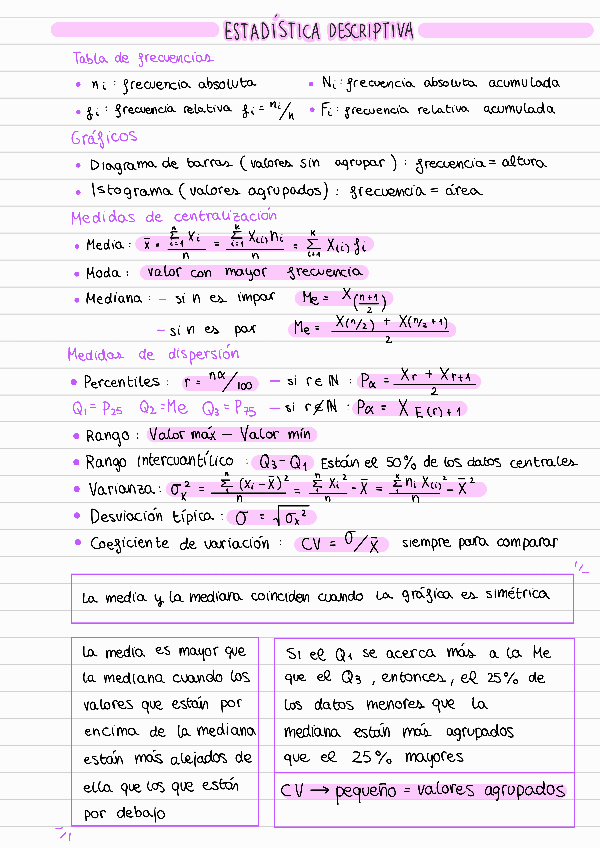 ESTADÍSTICA DESCRIPTIVA
Tabla de frecuencias
• ni : frecuencia absoluta • Ni : frecuencia absoluta acumulada
• fi : frecuencia relativa fi = ni/n • Fi : frecuencia relativa acumulada
Gráficos
• Diagrama de barras (valores sin agrupar) : frecuencia = altura
• Istograma (valores agrupados) : frecuencia = área
Medidas de centralización
• Media : x̄ = Σ(i=1, n) Xi / n = Σ(i=1, K) X(i) ni / n = Σ(i=1, K) X(i) fi
• Moda : valor con mayor frecuencia
• Mediana : – si n es impar Me = X((n+1)/2)
– si n es par Me = (X(n/2) + X(n/2+1)) / 2
Medidas de dispersión
• Percentiles : r = nα/100 – si r ∈ ℕ : Pα = (Xr + Xr+1) / 2
Q1 = P25 Q2 = Me Q3 = P75 – si r ∉ ℕ · Pα = X E(r)+1
• Rango : Valor máx – Valor mín
• Rango intercuantílico : Q3 – Q1 Están el 50% de los datos centrales
• Varianza : σx² = Σ(1, n) (xi – x̄)² / n = Σ(1, n) xi² / n – x̄ = Σ(1, K) ni X(i)² / n – x̄²
• Desviación típica : σ = √σx²
• Coeficiente de variación : CV = σ/x̄ siempre para comparar
La media y la mediana coinciden cuando la gráfica es simétrica
La media es mayor que
la mediana cuando los
valores que están por
encima de la mediana
están más alejados de
ella que los que están
por debajo
Si el Q1 se acerca más a la Me
que el Q3, entonces, el 25% de
los datos menores que la
mediana están más agrupados
que el 25% mayores
CV → pequeño = valores agrupados